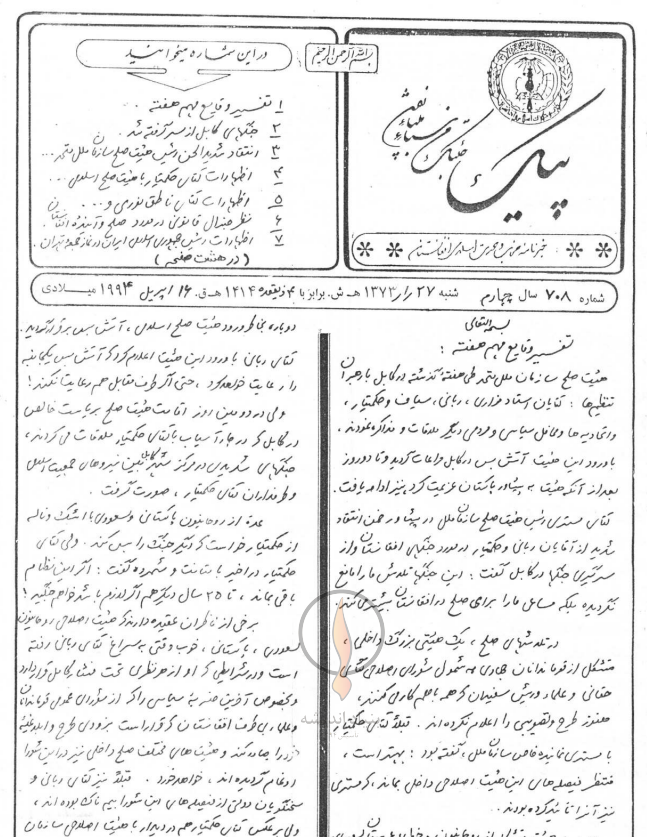 بسم الله الرحمن الرحیم
در این شماره میخوانید
۱ تفسیر وقایع مهم هفته .
۲ جنگهای کابل از سر گرفته شد .
۳ انتقاد شدیداللحن رئیس هیئت صلح سازمان ملل متحد ...
۴ اظهارات آقای حکمتیار با هیئت صلح اسلامی ...
۵ اظهارات آقای ناطق نوری و ...
۶ نظر جنرال قانونی در مورد صلح و آینده افغانستان
۷ اظهارات رئیس جمهوری اسلامی ایران در نماز جمعه تهران .
( در هشت صفحه )
پیک
خبرنامه
شماره ۷۰۸ سال چهارم شنبه ۲۷ ر ۱ ر ۱۳۷۳ هـ ش. برابر با ۴ ذیقعده ۱۴۱۴ هـ ق. ۱۶ اپریل ۱۹۹۴ میلادی
بسمه تعالی
تفسیر وقایع مهم هفته :
هیئت صلح سازمان ملل متحد طی هفته گذشته در کابل با رهبران
تنظیم‌ها : آقایان استاد مزاری ، ربانی ، سیاف و حکمتیار ،
و اتحادیه ها و محافل سیاسی و مردمی دیگر ملاقات و مذاکره نمودند .
با ورود این هیئت آتش بس در کابل مراعات گردید و تا دو روز
بعد از آنکه هیئت به پیشاور پاکستان عزیمت کرد نیز ادامه یافت .
آقای مستری رئیس هیئت صلح سازمان ملل در پیشاور ضمن انتقاد
شدید از آقایان ربانی و حکمتیار در مورد جنگهای افغانستان و از
سرگیری جنگها در کابل گفت : این جنگها تلاش ما را مانع
نگردیده بلکه مسایل ما را برای صلح در افغانستان بیشتر می کند .
در تلاشهای صلح ، یک هیئتی بزرگ داخلی ،
متشکل از قوماندانان جهادی به شمول شورای اصلاحی آقای
حقانی و علما و ریش سفیدان که همه باهم کار می کنند ،
هنوز طرح و تصویبی را اعلام نکرده اند . قبلاً آقای حکمتیار
با مستری نماینده خاص سازمان ملل ، گفته بود : بهتر است ،
منتظر فیصله های این هیئت اصلاحی داخلی بماند ، که مستری
نیز آنرا تائید کرده بودند .
دوباره بخاطر ورود هیئت صلح اسلامی ، آتش بس برقرار گردید .
آقای ربانی با ورود این هیئت اعلام کرد که آتش بس یکجانبه
را رعایت خواهد کرد ، حتی اگر طرف مقابل هم رعایت نکند !
ولی در دومین روز اقامت هیئت صلح بریاست خالص
در کابل که در چارآسیاب با آقای حکمتیار ملاقات می کردند ،
جنگهای شدیدی در مرکز شهر کابل بین نیروهای جمعیت اسلامی
و طرفداران آقای حکمتیار ، صورت گرفت .
عده از روحانیون پاکستانی و سعودی با اشک و ناله
از حکمتیار خواست که دیگر جنگ را بس کند . ولی آقای
حکمتیار در اخیر با متانت و شمرده گفت : اگر این نظام
باقی بماند ، تا ۲۵ سال دیگر هم اگر لازم باشد خواهم جنگید !
برخی از ناظران عقیده دارند که هیئت اصلاحی روحانیون
سعودی ، پاکستانی ، خوب وقتی به سراغ آقای ربانی رفته
است و در شرایطی که او از هر نظری تحت فشار کامل قرار دارد
و بخصوص آخرین ضربه سیاسی را که از سوی شورای عمومی قوماندانان
و علمای بی‌طرف افغانستان که قرار است بزودی طرح و اعلامیه
خود را صادر کند و هیئت های مختلف صلح داخلی نیز در این شورا
ادغام گردیده اند ، خواهد خورد . قبلاً نیز آقای ربانی و
سخنگویان دولتی از فیصله های این شورا بیم ناک بوده اند ،
ولی برعکس آقای حکمتیار هم در دیدار با هیئت اصلاحی سازمان